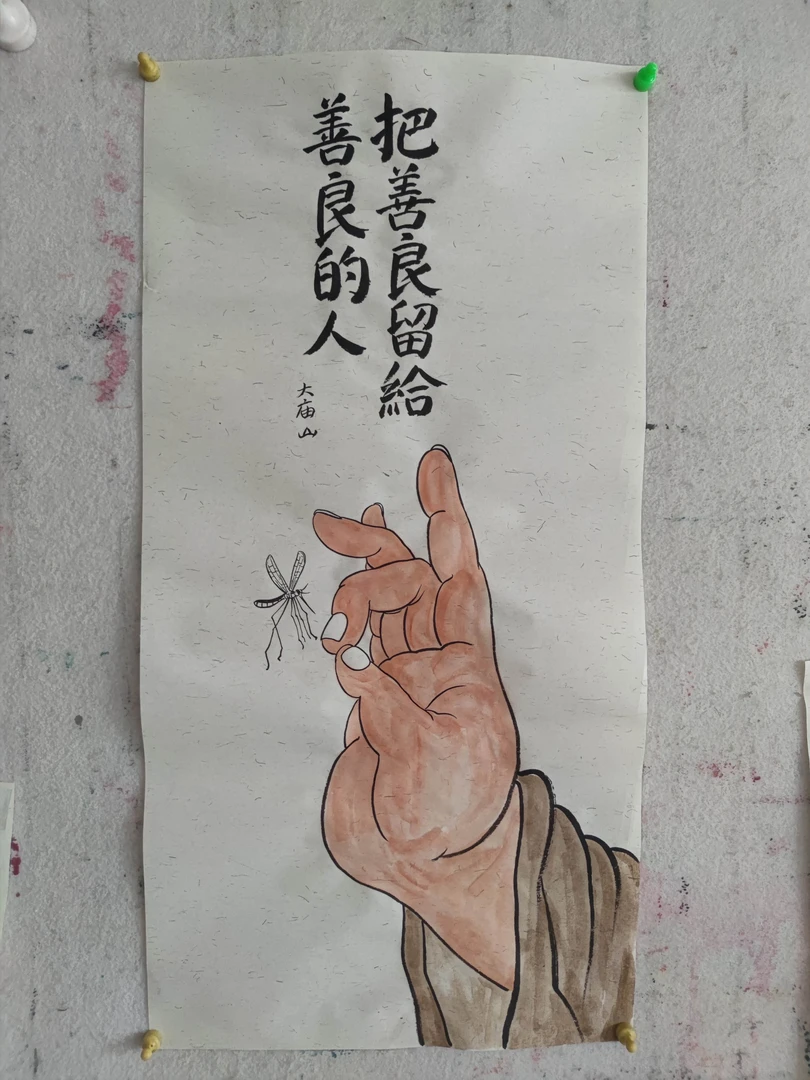 把善良留給
善良的人
大庙山